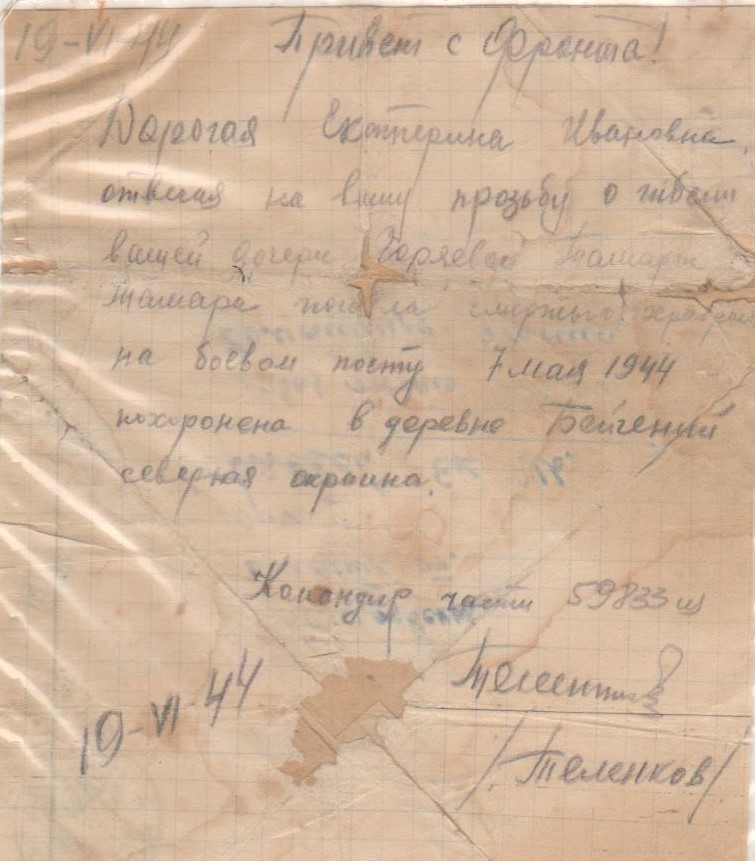 19-VI-44
Привет с Фронта!
Дорогая Екатерина Ивановна,
отвечая на вашу прозьбу о гибели
вашей дочери Тамары
Тамара погибла смертью храбрых
на боевом посту 7 мая 1944
похоронена в деревне Бейчений
северная окраина.
Командир части 59833 ш
19-VI-44
/Теленков/